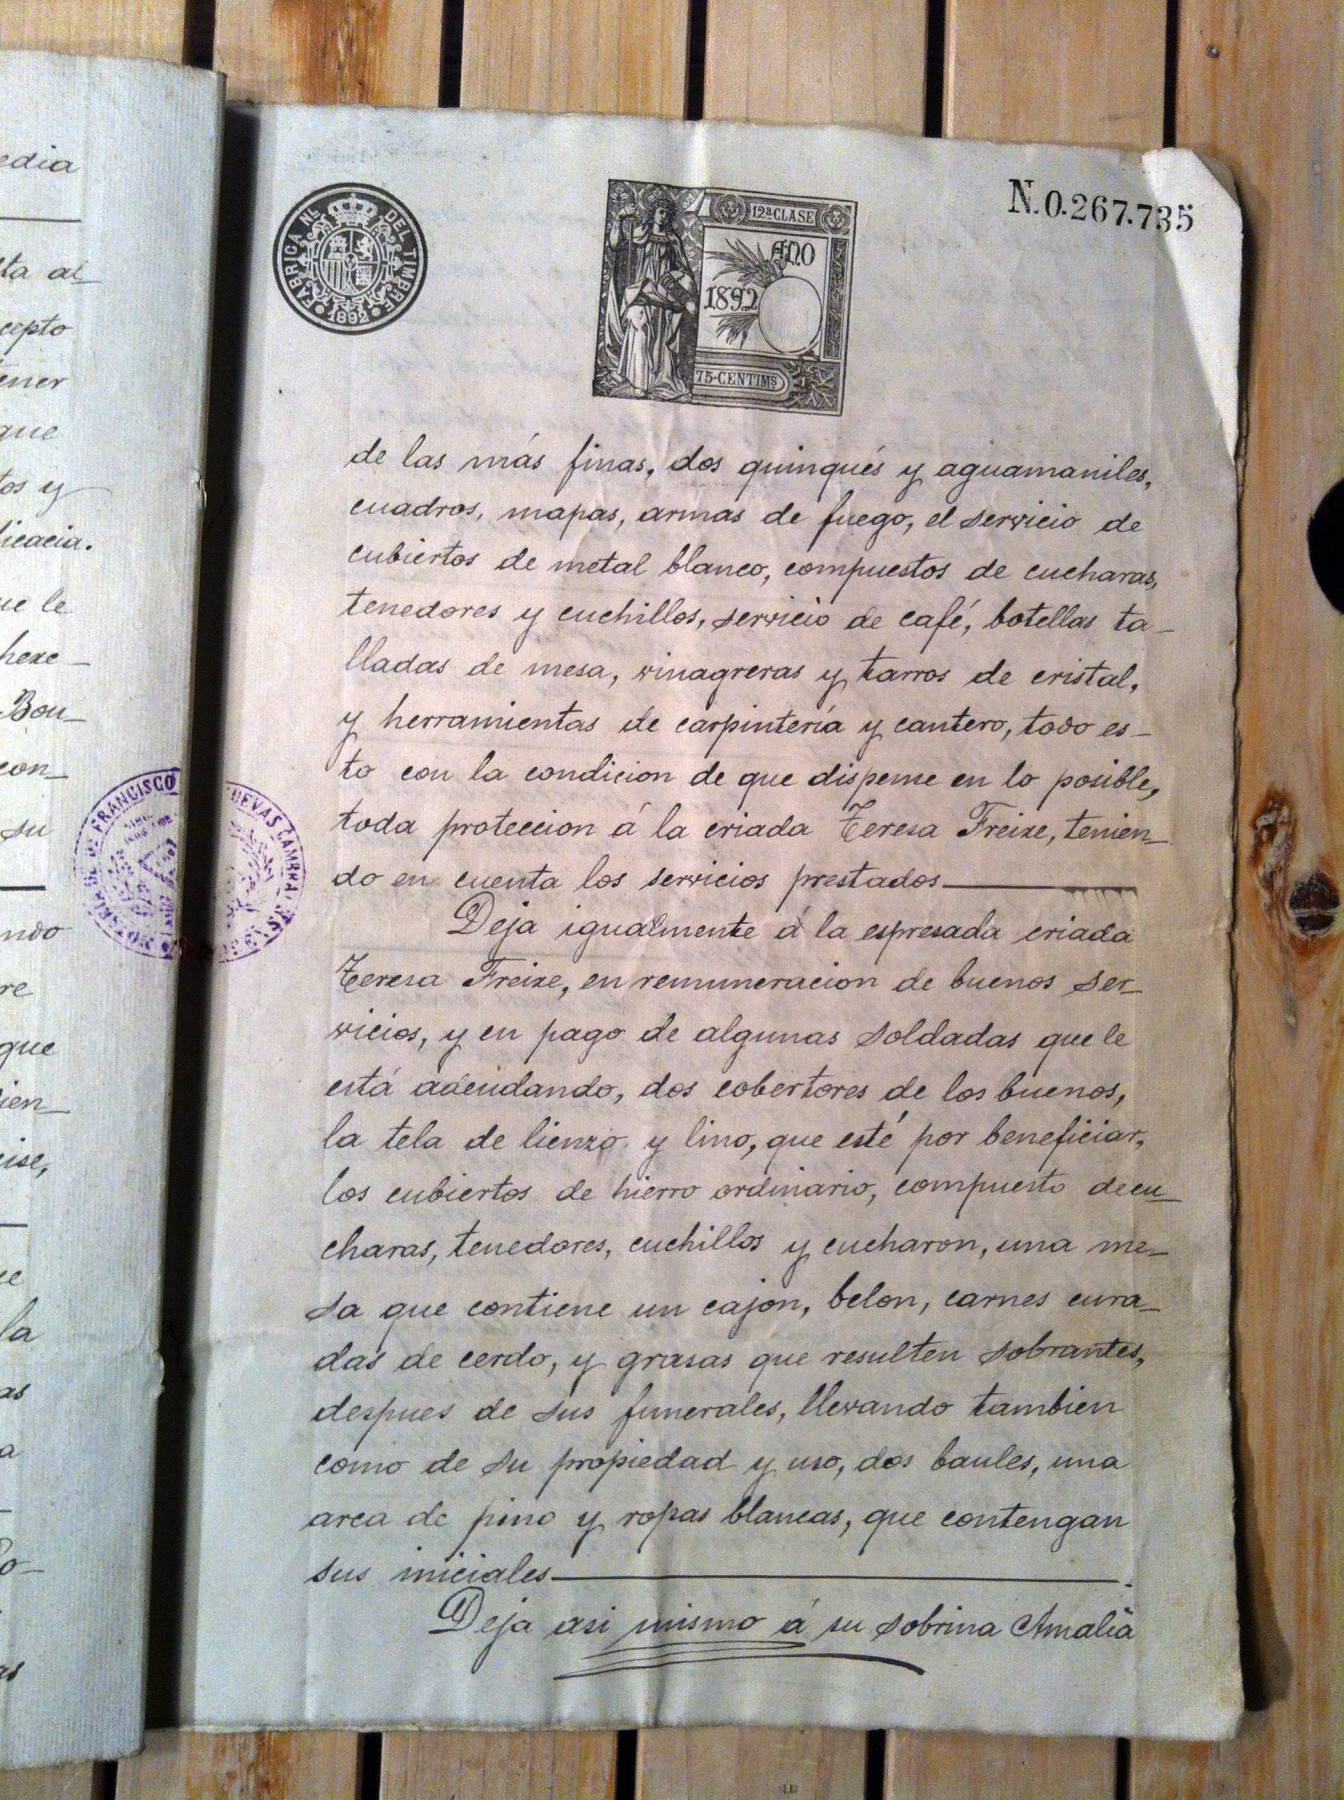 edia
ta al-
cepto
ener
que
tos y
licacia.
ue le
here-
Bou-
con-
su
ndo
re
que
ien-
eise,
la
as
a
as
FABRICA NL. DEL TIMBRE
1892
12ª CLASE
AÑO
1892
75-CENTIMS
N.0.267.735
de las más finas, dos quinqués y aguamaniles,
cuadros, mapas, armas de fuego, el servicio de
cubiertos de metal blanco, compuestos de cucharas,
tenedores y cuchillos, servicio de café, botellas ta-
lladas de mesa, vinagreras y tarros de cristal,
y herramientas de carpintería y cantero, todo es-
to con la condicion de que dispense en lo posible,
toda proteccion á la criada Teresa Freixe, tenien-
do en cuenta los servicios prestados
Deja igualmente á la espresada criada
Teresa Freixe, en remuneracion de buenos ser-
vicios, y en pago de algunas soldadas que le
está adeudando, dos cobertores de los buenos,
la tela de lienzo y lino, que esté por beneficiar,
los cubiertos de hierro ordinario, compuesto de cu-
charas, tenedores, cuchillos y cucharon, una me-
sa que contiene un cajon, belon, carnes cura-
das de cerdo, y grasas que resulten sobrantes,
despues de sus funerales, llevando tambien
como de su propiedad y uso, dos baules, una
arca de pino y ropas blancas, que contengan
sus iniciales
Deja asi mismo á su sobrina Amalia
NOTARIA DE D. FRANCISCO CUEVAS CAMBRA